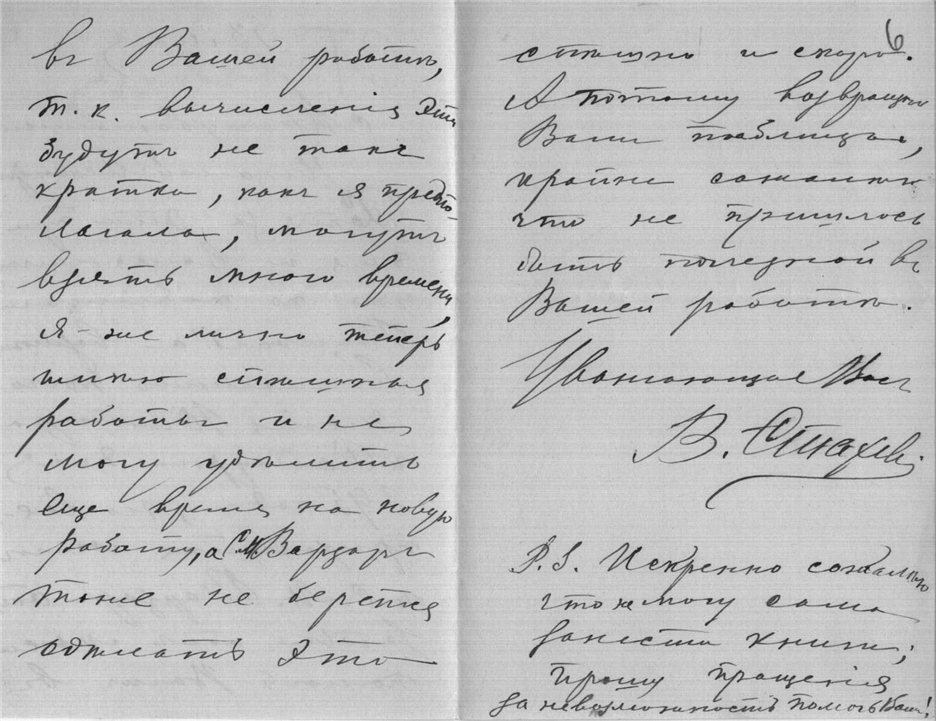 въ Вашей работѣ,
т. к. вычисленія эти
будутъ не такъ
кратки, какъ я предпо-
лагала, могутъ
взять много времени,
я-же лично теперь
имѣю спѣшныя
работы и не
могу удѣлить
еще время на новую
работу, а Варзаръ
тоже не берется
сдѣлать это
6
спѣшно и скоро.
А потому возвращаю
Ваши таблицы,
крайне сожалѣю
что не пришлось
быть полезной въ
Вашей работѣ.
Уважающая Васъ
В. Стахев
P.S. Искренно сожалѣю
что не могу сама
занести книги;
прошу прощенія
за невозможность помочь Вамъ!